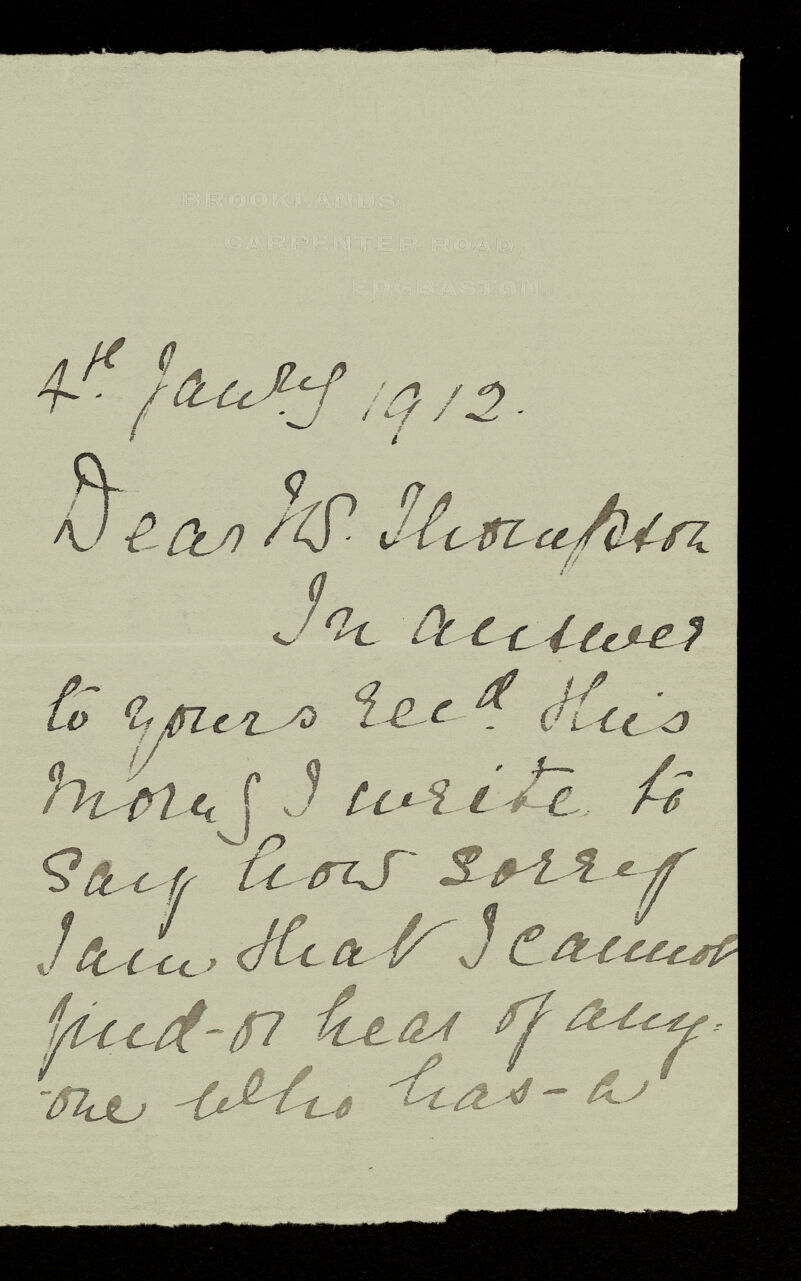 BROOKLANDS,
CARPENTER ROAD,
EDGBASTON.
4th. Janry 1912.
Dear Mr. Thompson
In answer
to yours recd. this
morng I write to
say how sorry
I am that I cannot
find - or hear of any-
-one who has - a